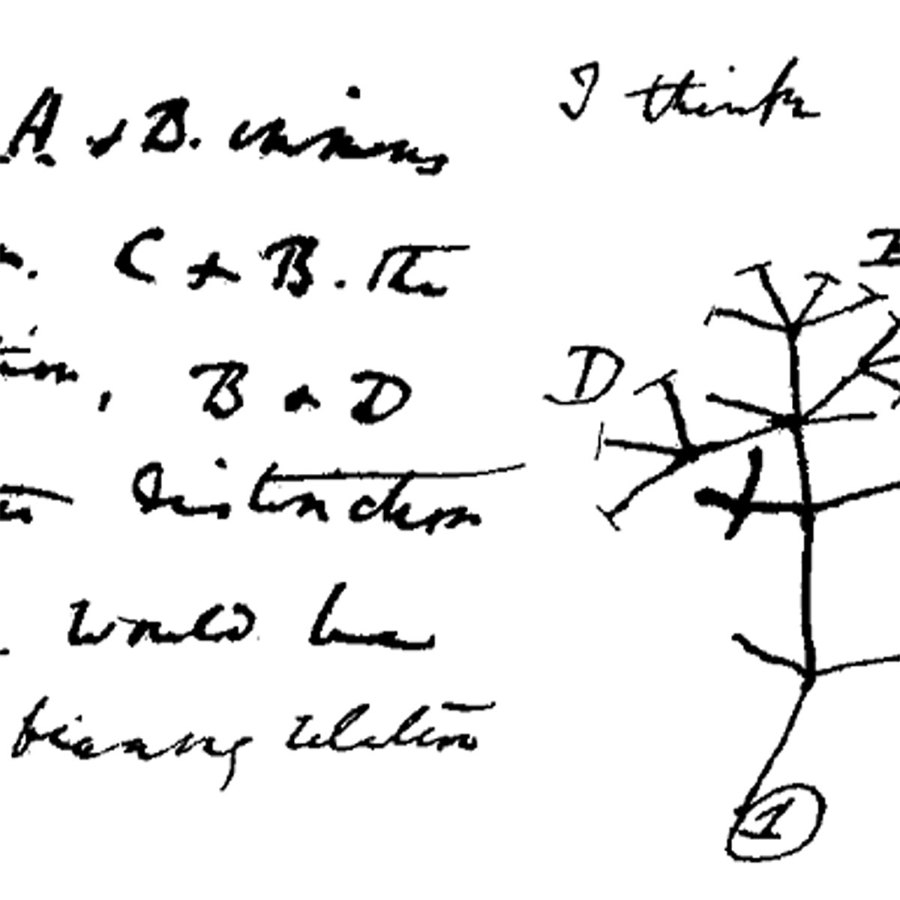 I think
A & B. immens
n. C & B. The
tion, B & D
distinction
would be
bienny relation
B
D
1